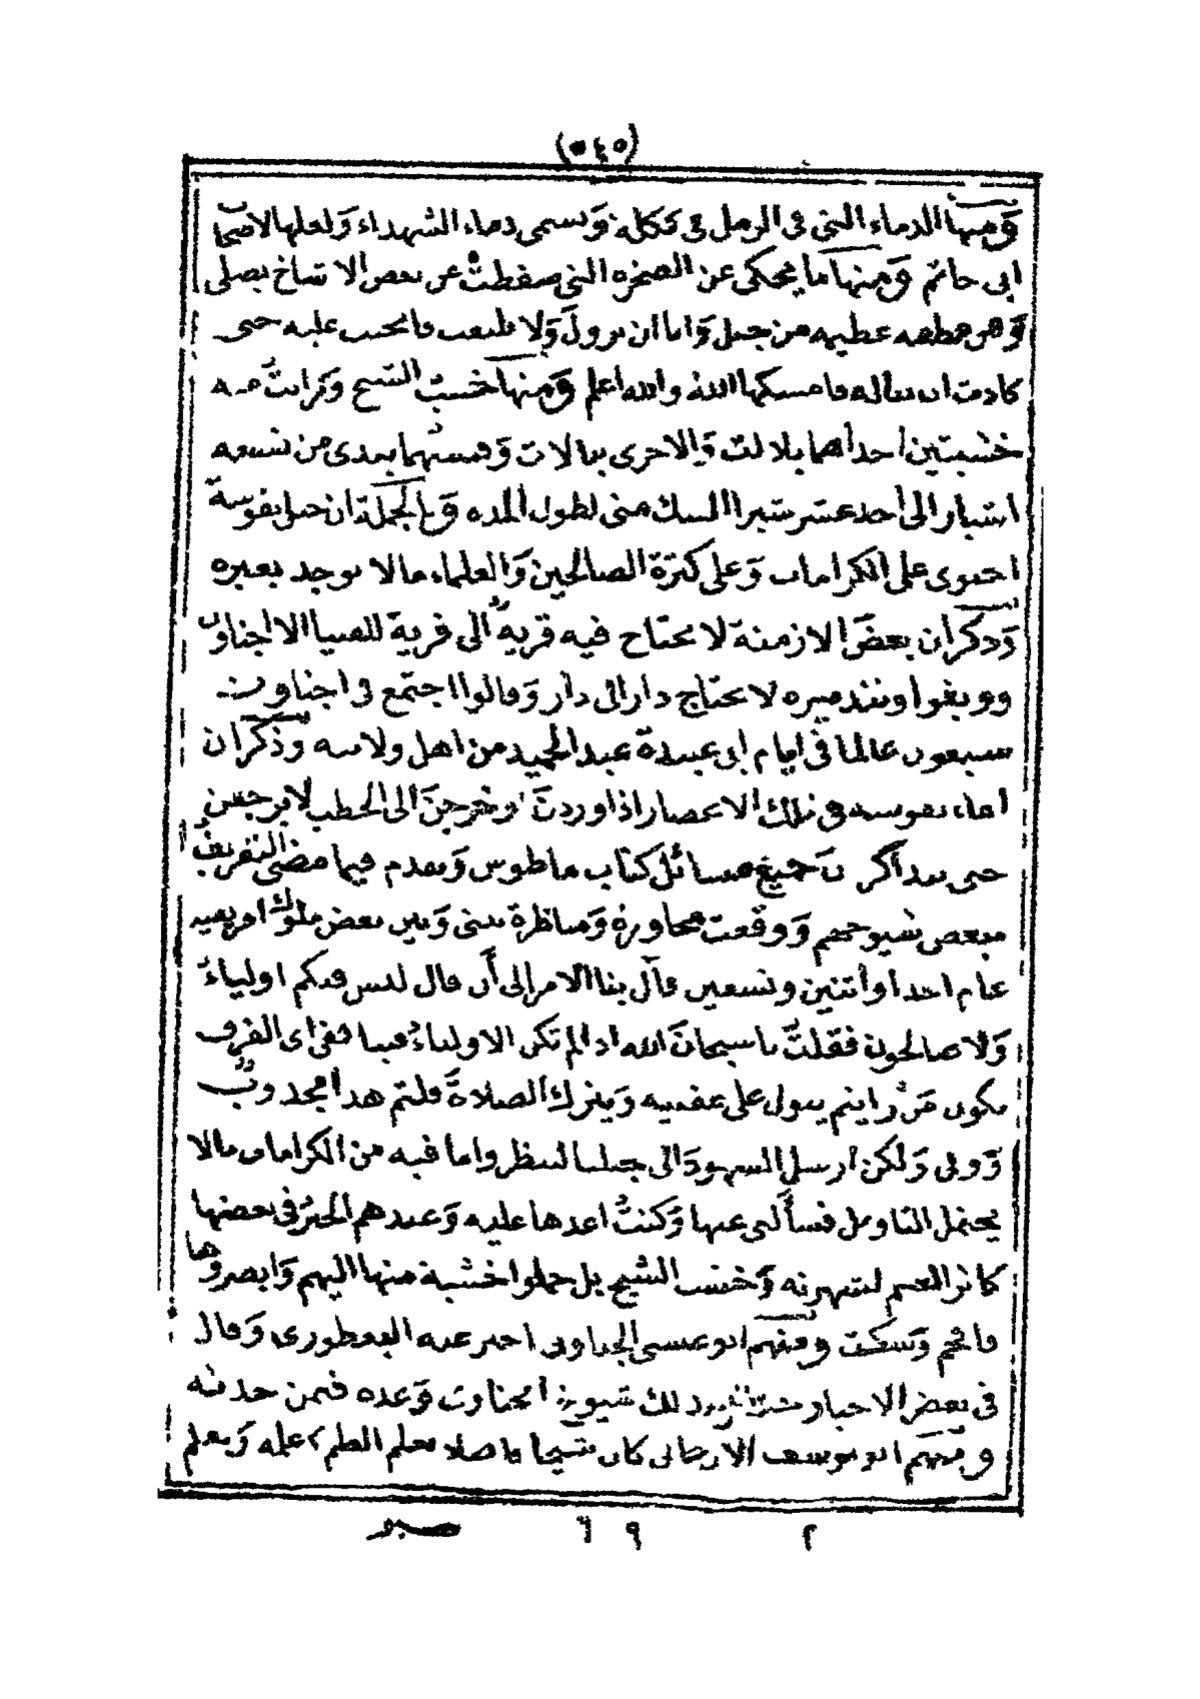 (٥٤٥)
ومنها الدماء التى فى الرمل فى تكله وتسمى دماء الشهداء ولعلها لاصحاب
ابى حاتم ومنها ما يحكى عن الصخره التى سقطت عن بعض الاشاخ يصلى
وهى قطعه عظيمه من جبل واما ان يزول ولا
كادت ان تناله فامسكها الله والله اعلم ومنها خشب الشيخ وكرامت
خشبتين احداهما بلالت والاخرى بتالات وقستهما بيدى من تسعه
اشبار الى احد عشر شبرا الشك منى لطول المده وبالجملة ان جبل نفوسة
احتوى على الكرامات وعلى كثرة الصالحين والعلماء مالا يوجد بغيره
وذكر ان بعض الازمنة لا يحتاج فيه قرية الى قرية للفتيا الا اجناون
وويغوا وتندميره لا يحتاج دار الى دار وقالوا اجتمع فى اجناون
سبعون عالما فى ايام ابى عبيدة عبد الحميد من اهل ولايته وذكر ان
اماء نفوسه فى تلك الاعصار اذا اوردن او خرجن الى الحطب لا يرجعن
حتى يتذاكرن جميع مسائل كتاب ماطوس وتقدم فيما مضى التعريف
ببعض شيوخهم ووقعت محاورة ومناظرة بينى وبين بعض ملوك افريقيه
عام احد او اثنين وتسعين فآل بنا الامر الى أن قال ليس فيكم اولياء
ولا صالحون فقلت يا سبحان الله اذا لم تكن الاولياء فينا ففى اى الفرق
يكون من رايتم يبول على عقبيه ويترك الصلاة قلتم هذا مجذوب
وولى ولكن ارسل الشهود الى جبلنا لينظروا ما فيه من الكرامات مالا
يحتمل التاويل فسألنى عنها وكنت اعدها عليه وعندهم الخبر فى بعضها
كانزا العجم لشهرته وخشب الشيخ بل حملوا خشبة منها اليهم وابصروها
فافحم وسكت ومنهم ابو عيسى الجناونى اخبر عنه البغطورى وقال
فى بعض الاخبار حدثنا بذلك شيوخ اجناون وعده فيمن حدثه
ومنهم ابو يوسف الارجانى كان شيخا فاضلا تعلم العلم وعلمه وتعلم
٢ ٦٩ صبر